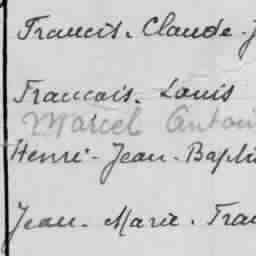 Francis. Claude. J
Francois. Louis
Marcel Antoi
Henri. Jean. Bapti
Jean. Marie. Fra